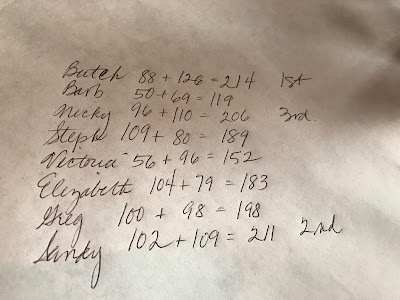 Butch 88 + 126 = 214 1st
Barb 50 + 69 = 119
Nicky 96 + 110 = 206 3rd.
Steph 109 + 80 = 189
Victoria 56 + 96 = 152
Elizabeth 104 + 79 = 183
Greg 100 + 98 = 198
Sandy 102 + 109 = 211 2nd